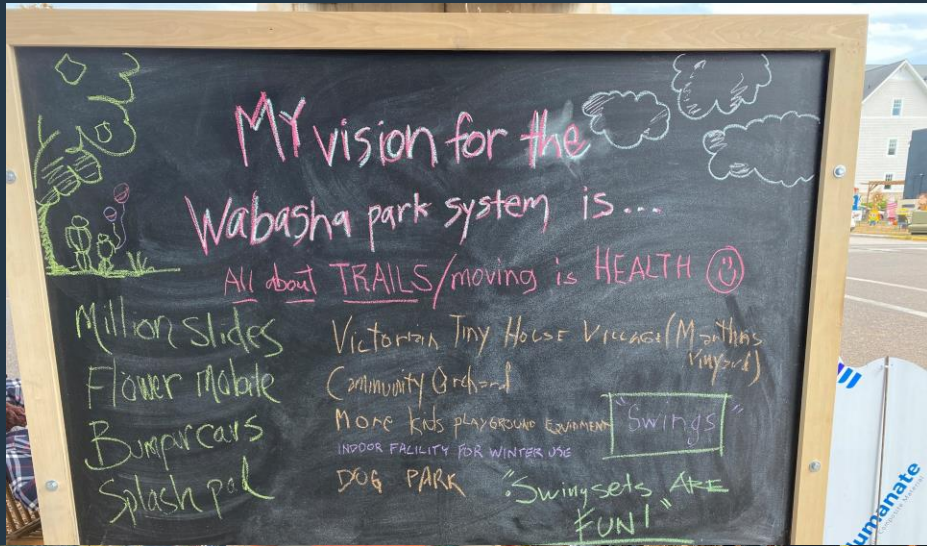 MY vision for the
Wabasha park system is...
All about TRAILS/moving is HEALTH
Million Slides
Flower Mobile
Bumparcars
Splash pad
Victorian Tiny House Village (Marthas
Vinyard)
Community Orchard
More Kids PLAYGROUND EQUIPMENT
"Swings"
INDOOR FACILITY FOR WINTER USE
DOG PARK
"Swingsets ARE
FUN!"
Humanate
Composite Material